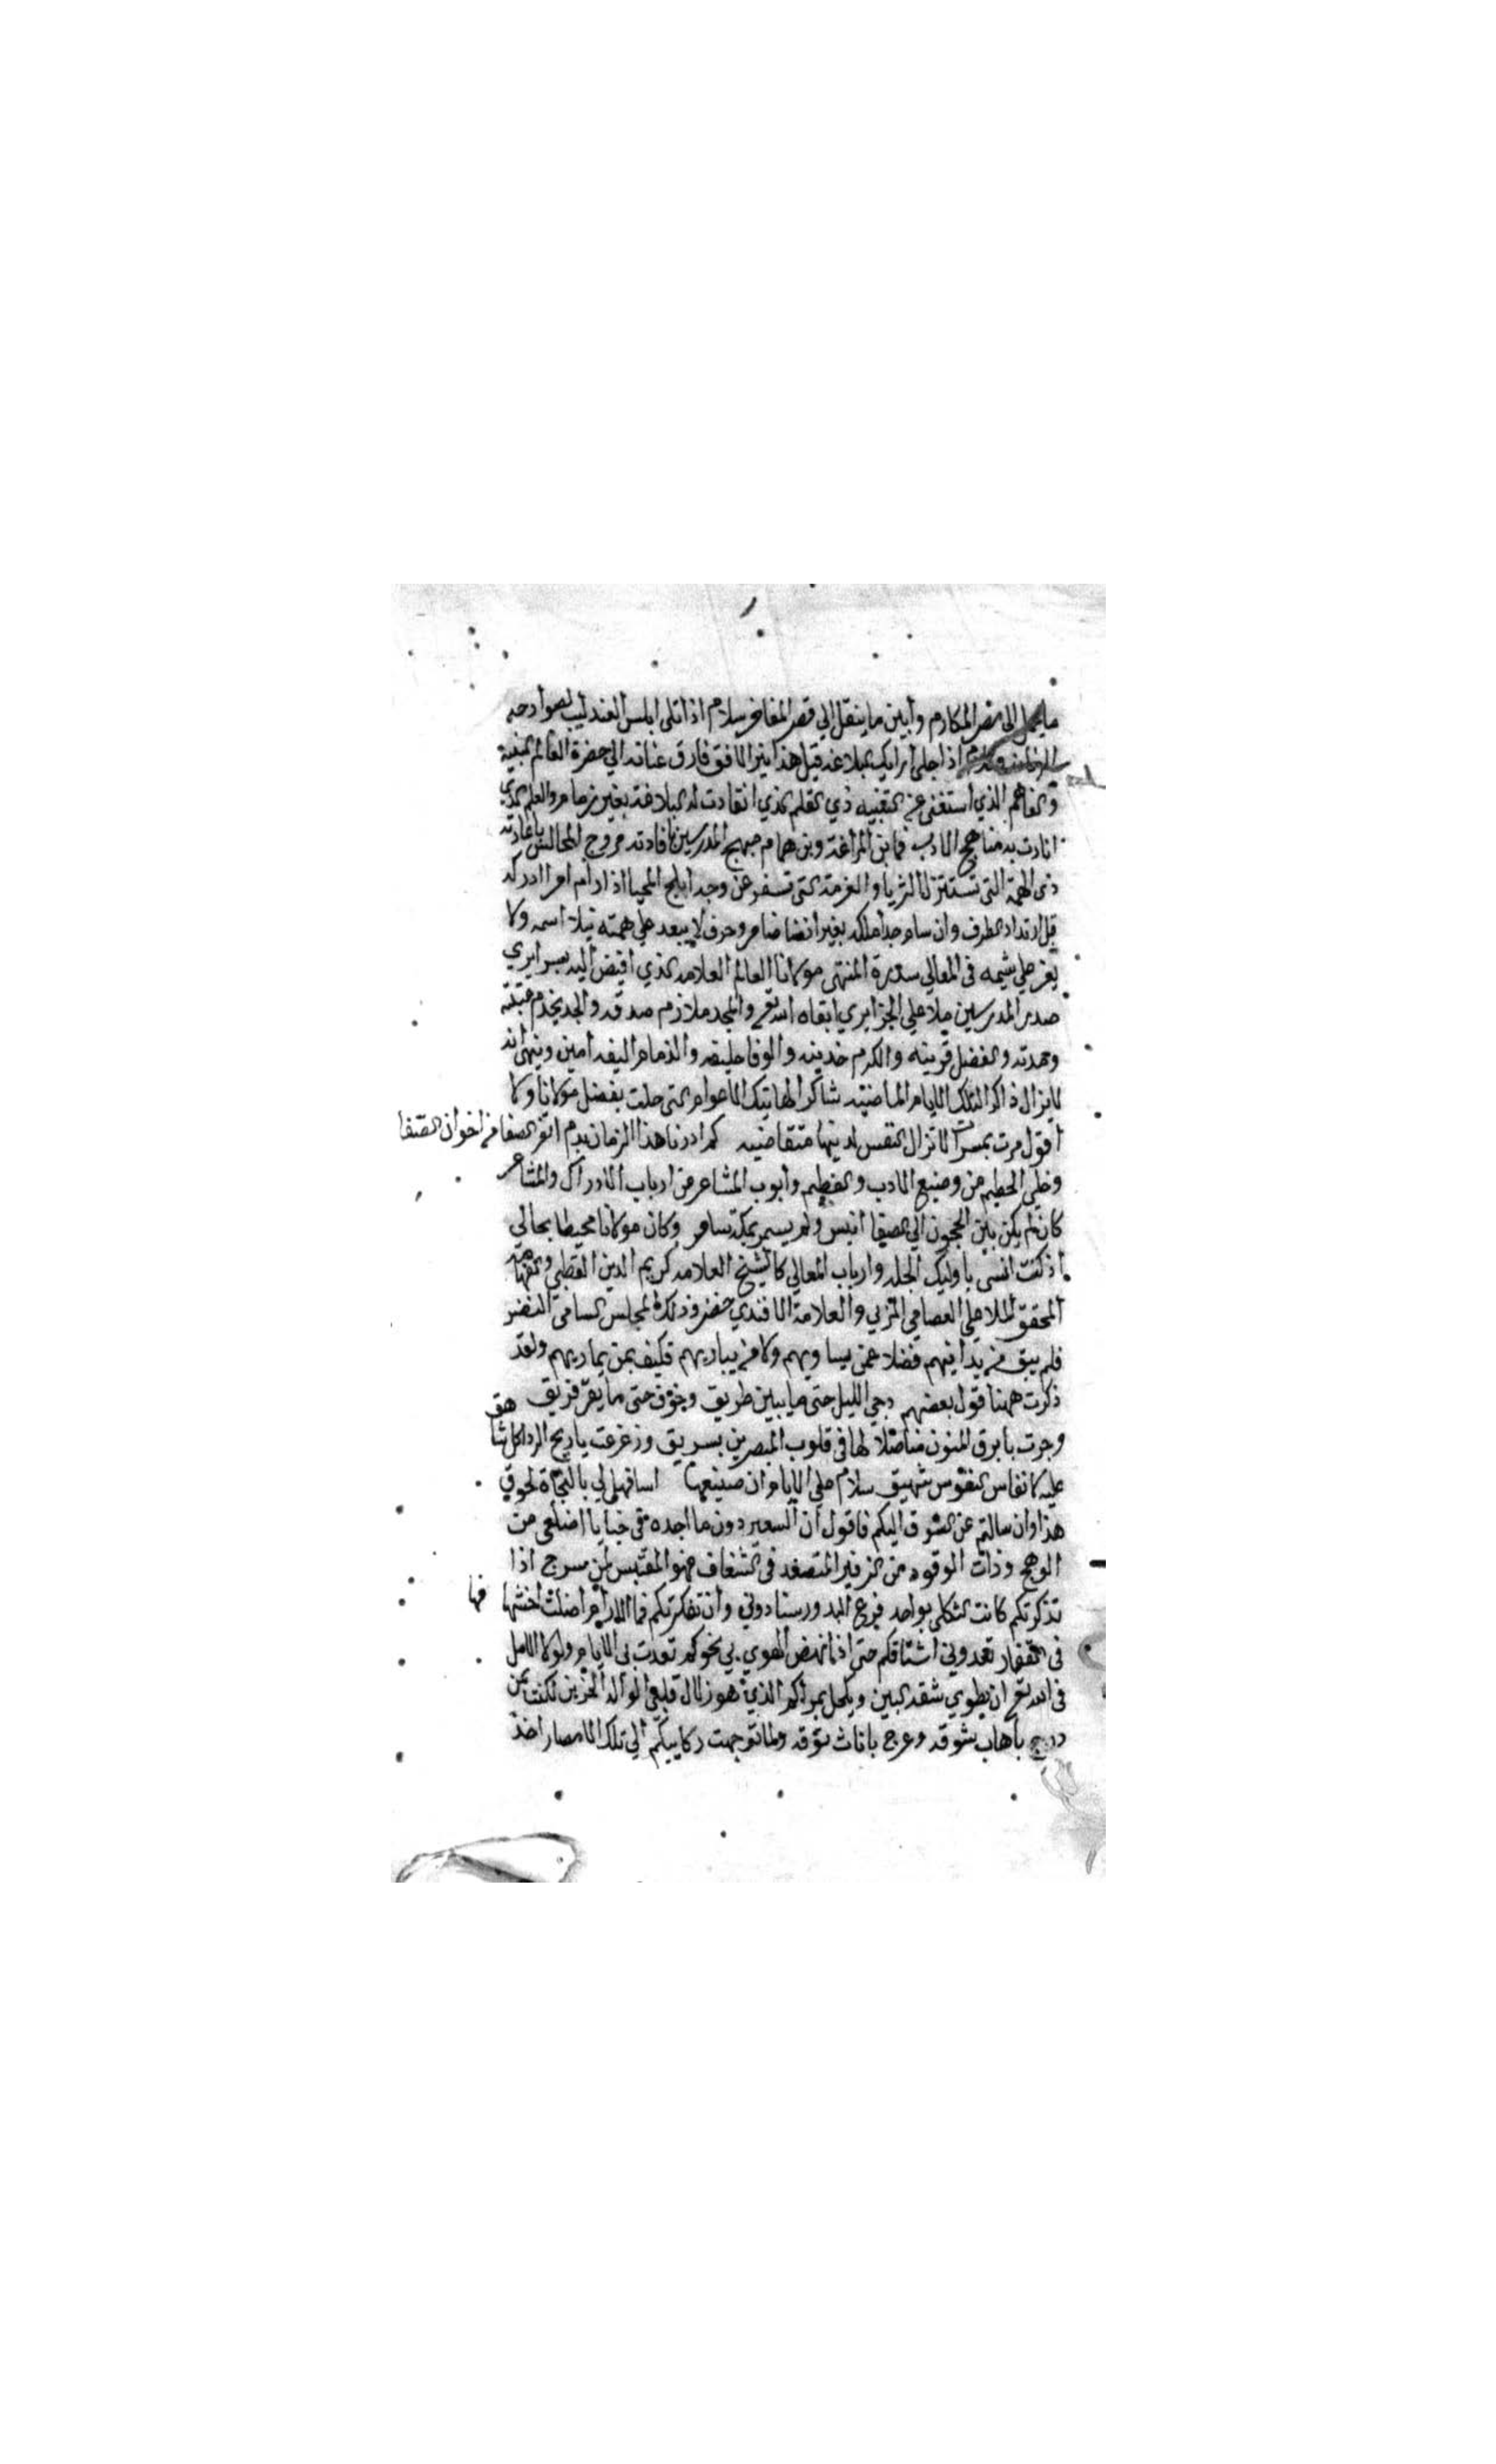 ما يحمل الى مصر المكارم وأبين ما ينقل إلي قصر المفاخر سلام اذا تلى ابلس العندليب لصوادحه
اذا جلى ارايك بلاغه قيل هذا نير الافق فارق عنانه الي حضرة العالم النبيه
والفاهم الذي استغنى عن التنبيه ذي القلم الذي انقادت له البلاغة بغير زمام والعلم الذي
انارت به مناهج الادب فما بن المراغة وبن همام مبهج المدرسين بافادته مروج المجالس باعادته
ذى الهمة التى تستنزل الثريا والعزمة التى تسفر عن وجه ابلج المحيا اذا رام امرا ادركه
قبل ارتداد الطرف وان سام مجدا ملكه بغير انضا ضامر وحرف لا يبعد على همته نيلا اسمه ولا
يعز على شيمه فى المعالي سدرة المنتهى مولانا العالم العلامه الذي افيض اليه
صدر المدرسين ملا علي الجزايري ابقاه الله تعالى والمجد ملازم صدقه والجد يخدم
وعمدته والفضل قرينه والكرم خدينه والوفا حليفه والذمام اليفه امين وينهى انه
لا يزال ذاكرا لتلك الايام الماضيه شاكرا لهاتيك الاعوام التى حلت بفضل مولانا ولا
أقول مرت بمسرات لا تزال النفس لدينها متقاضيه كم ادرنا هذا الزمان يوم اقفر الصفا من اخوان الصفا
وخلي الحطيم من وضيع الادب والفطيم وأبوب المشاعر من ارباب الادراك والمشاعر
كان لم يكن بين الحجون الي الصفا انيس ولم يسمر بمكة سامر وكان مولانا محيطا بحالي
اذ كنت انسى باوليك الجله وارباب المعالي كالشيخ العلامه كريم الدين القطبي وتفهامه
المحقق الملا علي العصامي المزني والعلامة الافندي خضر وذلك المجلس السامى النضر
فلم يبق من يدانيهم فضلا عمن يساويهم ولا من يباريهم فكيف بمن يماريهم ولقد
ذكرت ههنا قول بعضهم دجى الليل حتى ما يبين طريق وخوف حتى ما يقر فريق
وجرت يا برق المنون مناصلا لها فى قلوب المبصرين بريق وزعزعت يا ريح الردا كل شاهق
عليه كانفاس النفوس شهيق سلام على الايام ان صنيعها اسا فهل لي بالنجاة لحوق
هذا وان سالتم عن الشوق اليكم فاقول ان السعير دون ما اجده فى خبايا اضلعى من
الوهج وذات الوقود من الزفير المتصعد فى الشغاف فهو المقتبس لمن سرج اذا
تذكرتكم كانت الثكلى بواحد فرع البدور سنا دوني وان تفكرتكم فما اضلت اخشها فها
فى القفار تعدوني اشتاقكم حتى اذا نهض الهوي بي نحوكم قعدت بي الايام ولولا الامل
فى الله تعالى ان يطوي شقة البين ويكحل بمراكم الذي هو زلال قلبى الواله الحزين لكنت ممن
درج باهاب شوقه وعرج باناث توقه ولما توجهت ركايبكم الي تلك الامصار اخذ